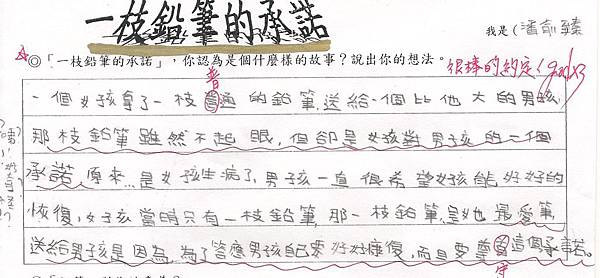 一枝鉛筆的承諾
我是(潘俞臻
☆◎「一枝鉛筆的承諾」，你認為是個什麼樣的故事？說出你的想法。很棒的約定！good x3
普
一個女孩拿了一枝普通的鉛筆，送給一個比他大的男孩，
那枝鉛筆雖然不起眼，但卻是女孩對男孩的一個
承諾，原來…是女孩生病了，男孩一直很希望女孩能好好的
恢復，女孩當時只有一枝鉛筆，那一枝鉛筆是她最愛筆，
送給男孩是因為，為了答應男孩自己要好好康復，而且要遵守這個承諾。
守